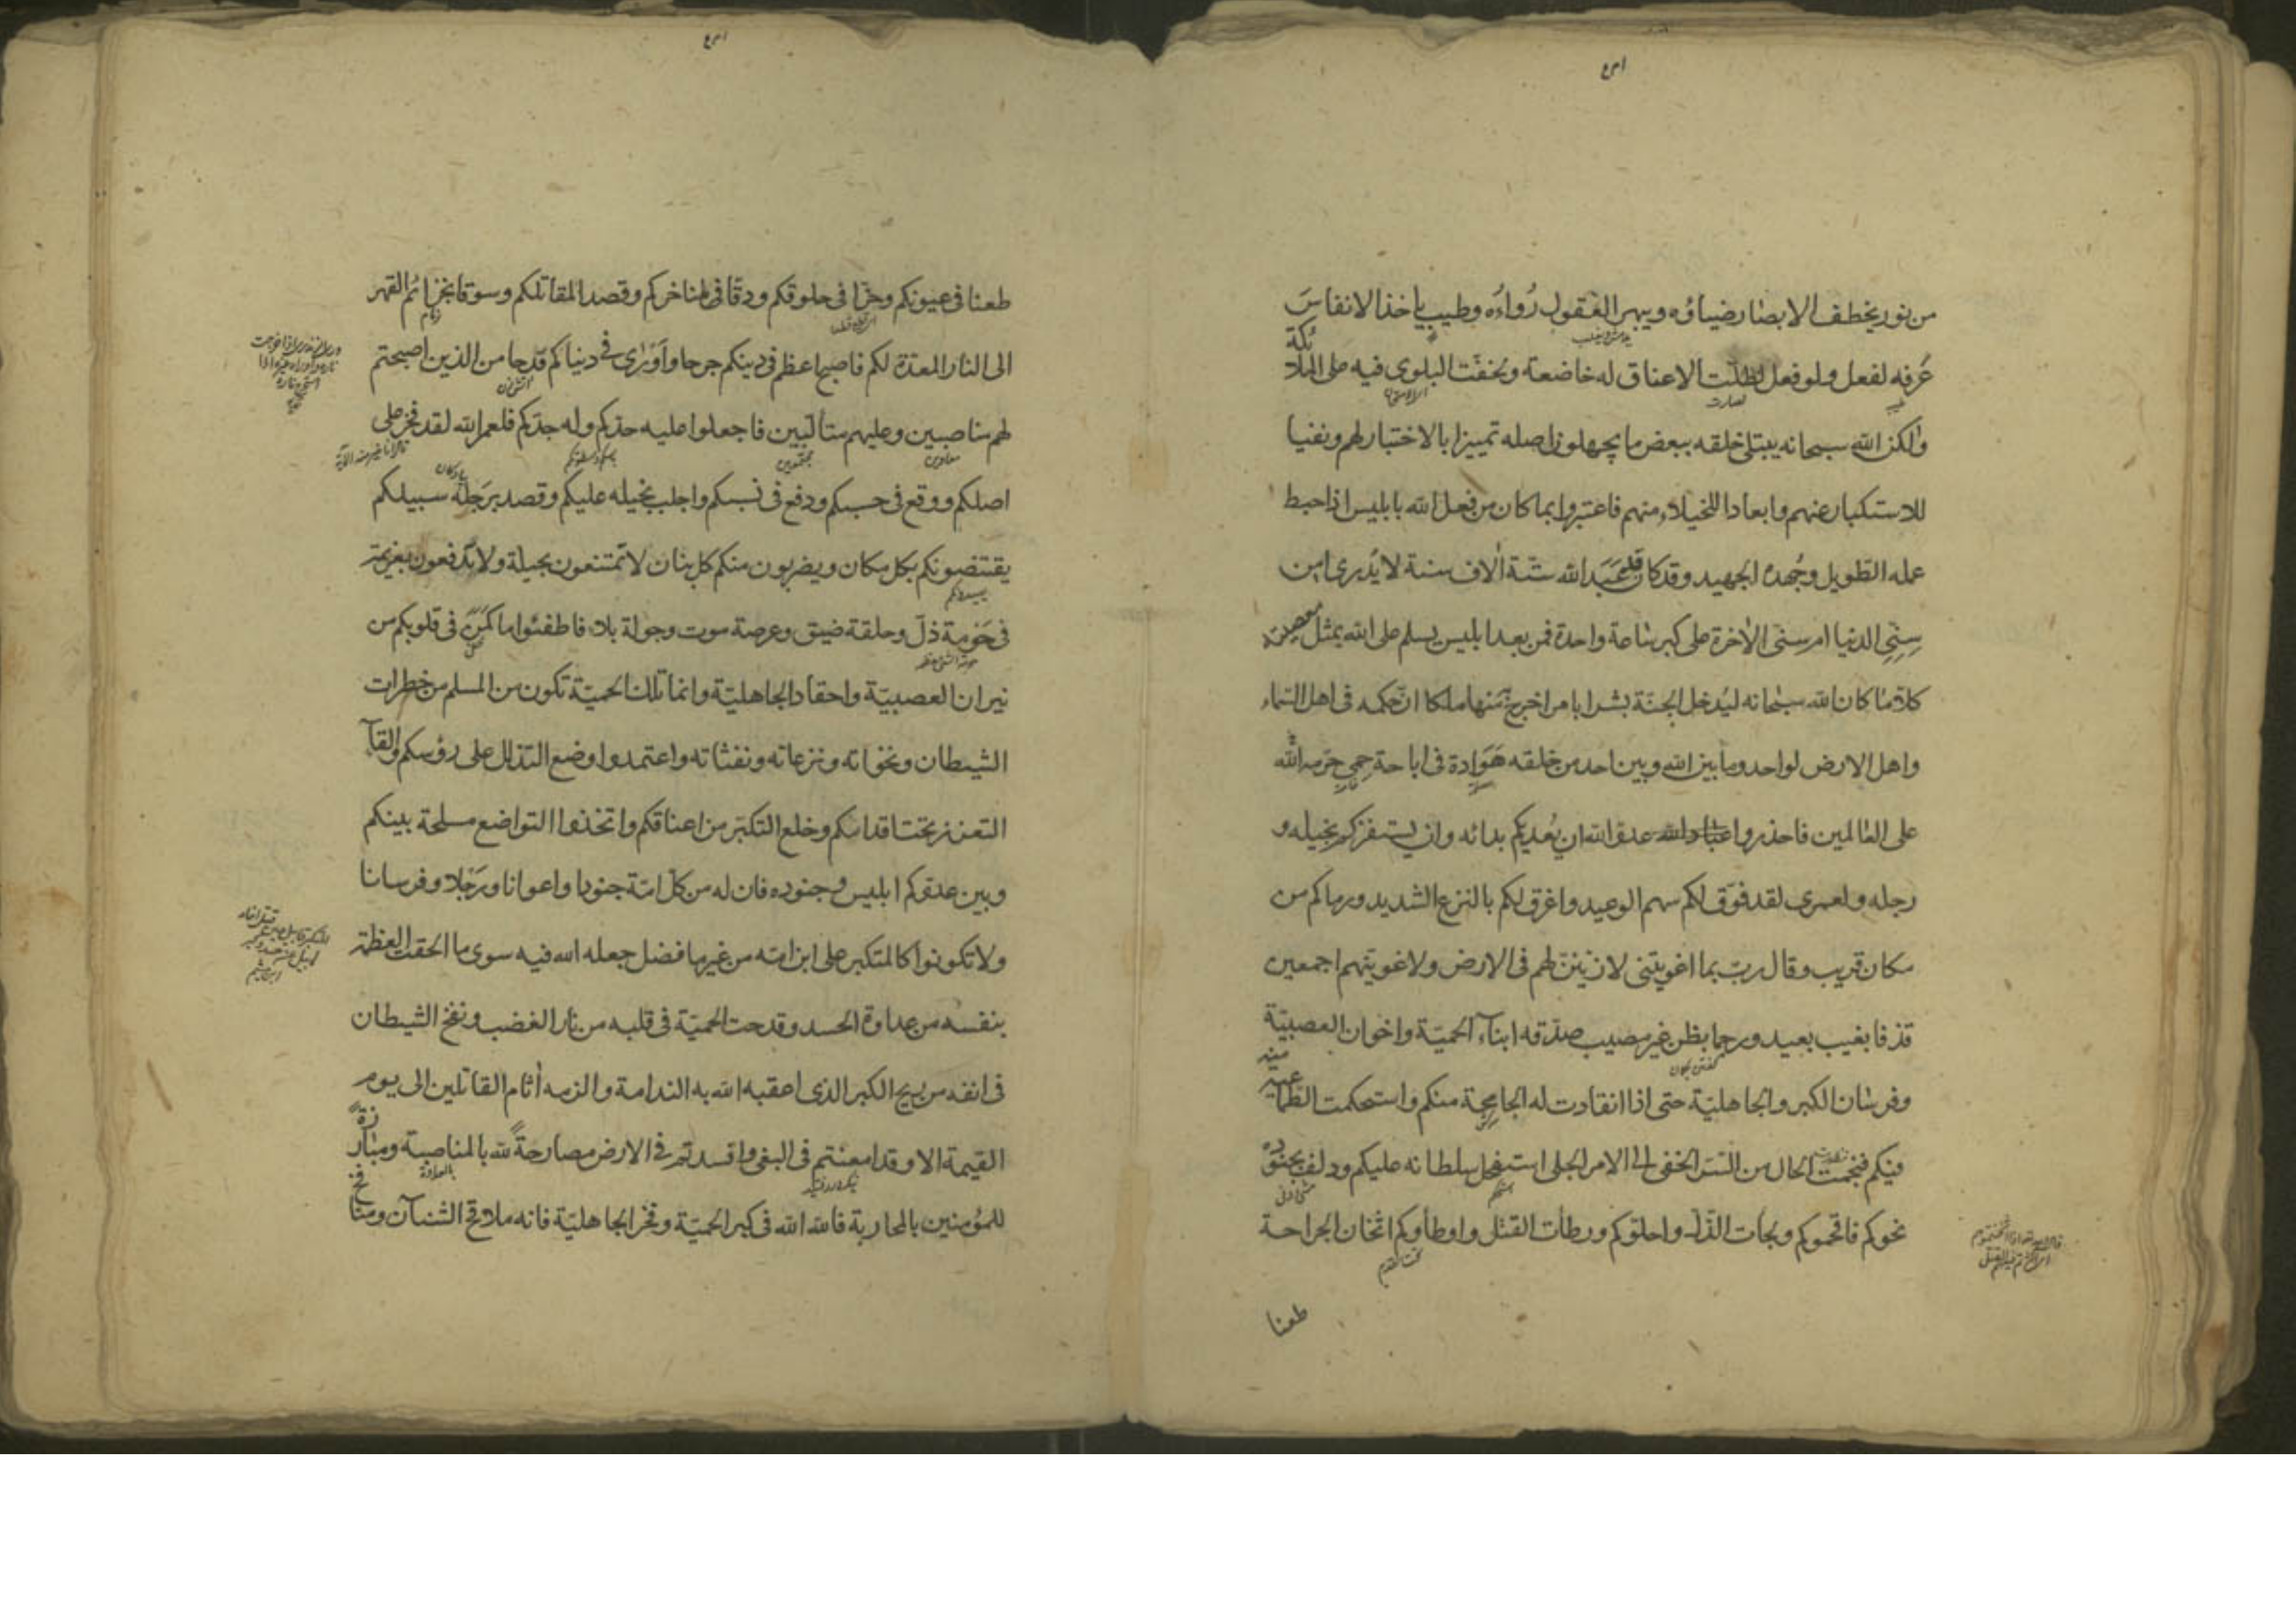 من نور يخطف الابصار ضياؤه ويبهر العقول رُواءُه وطيب ياخذ الانفاسَ
عَرفه لفعل ولو فعل لظلّت الاعناق له خاضعة ولخفّت البلوى فيه على الملائكة
ولكن الله سبحانه يبتلى خلقه ببعض ما يجهلون اصله تمييزا بالاختبار لهم ونفيا
للاستكبار عنهم وابعادا للخيلاء منهم فاعتبروا بما كان من فعل الله بابليس اذ احبط
عمله الطويل وجُهده الجهيد وقد كان عَبَدَ الله ستّة الاف سنة لا يُدرى امن
سِنِى الدنيا ام سنى الاخرة على كبر ساعة واحدة فمن بعد ابليس يسلم على الله بمثل معصيته
كلا ما كان الله سبحانه ليُدخل الجنّة بشرا بامر اخرج به منها ملكا ان حكمه فى اهل السماء
واهل الارض لواحد وما بين الله وبين احد من خلقه هَوادة فى اباحة حِمى حرّمه الله
على العالمين فاحذروا عباد الله عدوّ الله ان يُعديكم بدائه وان يستفزّكم بخيله و
رجله ولعمرى لقد فوّق لكم سهم الوعيد واغرق لكم بالنزع الشديد ورماكم من
مكان قريب وقال ربّ بما اغويتنى لازيننّ لهم فى الارض ولاغوينهم اجمعين
قذفا بغيب بعيد ورجما بظن غير مصيب صدّقه به ابناء الحميّة واخوان العصبيّة
وفرسان الكبر والجاهليّة حتى اذا انقادت له الجامحة منكم واستحكمت الطماعية منه
فيكم فنجمت الحال من السّر الخفى الى الامر الجلى استفحل سلطانه عليكم ودلف بجنوده
نحوكم فاقحموكم ولجات الذّل واحلّوكم ورطات القتل واوطاوكم اثخان الجراحة
طعنا
طعنا فى عيونكم وحزّا فى حلوقكم ودقّا فى لمناخركم وقصدا لمقاتلكم وسوقا بخزائم القهر
الى النار المعدّة لكم فاصبح اعظم فى دينكم جرحا وَاَورى فى دنياكم قدحا من الذين اصبحتم
لهم مناصبين وعليهم متالّبين فاجعلوا عليه حدّكم وله جدّكم فلعمر الله لقد فخر على
اصلكم ووقع فى حسبكم ودفع فى نسبكم واجلب بخيله عليكم وقصد برَجِله سبيلكم
يقتنصونكم بكل مكان ويضربون منكم كل بنان لا تمتنعون بحيلة ولا تدفعون بعزيمة
فى حَومة ذلّ وحلقة ضيق وعرصة موت وجولة بلاء فاطفئوا ما كَمَن فى قلوبكم من
نيران العصبيّة واحقاد الجاهليّة وانما تلك الحميّة تكون من المسلم من خطرات
الشيطان ونخواته ونزغاته ونفثاته واعتمدوا وضع التذلل على رؤسكم والقاء
التعزز تحت اقدامكم وخلع التكبّر من اعناقكم واتخذوا التواضع مسلحة بينكم
وبين عدوّكم ابليس وجنوده فان له من كلّ امّة جنودا واعوانا ورَجِلا وفرسانا
ولا تكونوا كالمتكبر على ابن امّه من غير ما فضل جعله الله فيه سوى ما الحقت العظمة
بنفسه من عداوة الحسد وقدحت الحميّة فى قلبه من نار الغضب ونفخ الشيطان
فى انفه من ريح الكبر الذى اعقبه الله به الندامة والزمه اثام القاتلين الى يوم
القيمة الا وقد امعنتم فى البغى وافسدتم فى الارض مصارحةً لله بالمناصبة ومبارزةً
للمؤمنين بالمحاربة فالله الله فى كبر الحميّة وفخر الجاهليّة فانه ملاقح الشنآن ومنافخ